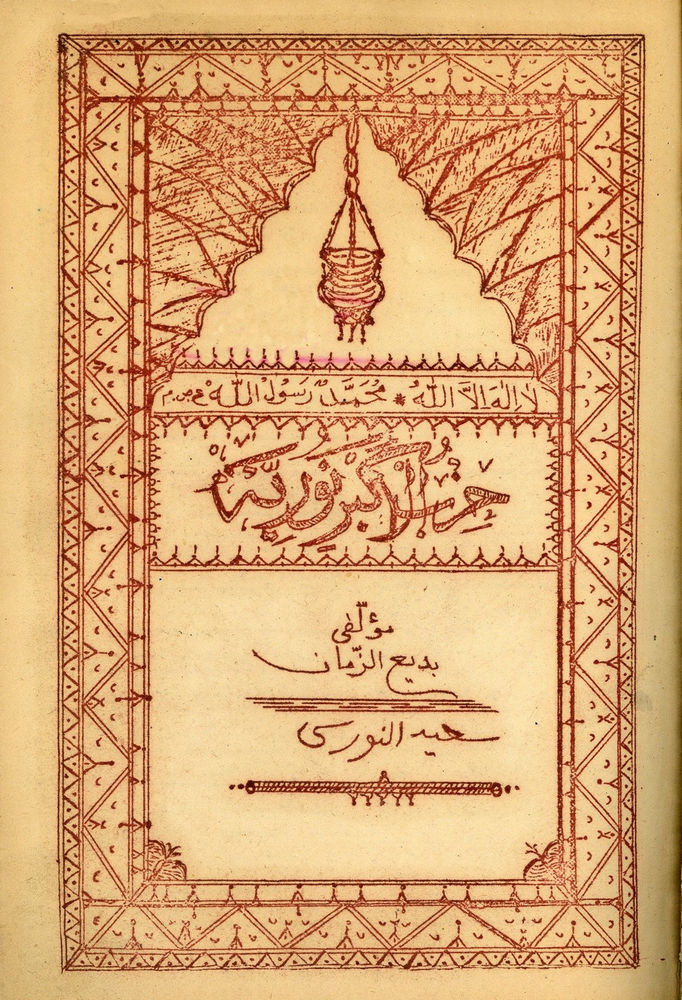 لا اِلٰهَ اِلاَّ اللّٰهُ * مُحَمَّدٌ رَسُولُ اللّٰهِ ع ص م
حِزْبُ الْاَكْبَرِ نُورِيَّه
مؤلّفى
بديع الزّمان
سعيد النورسى